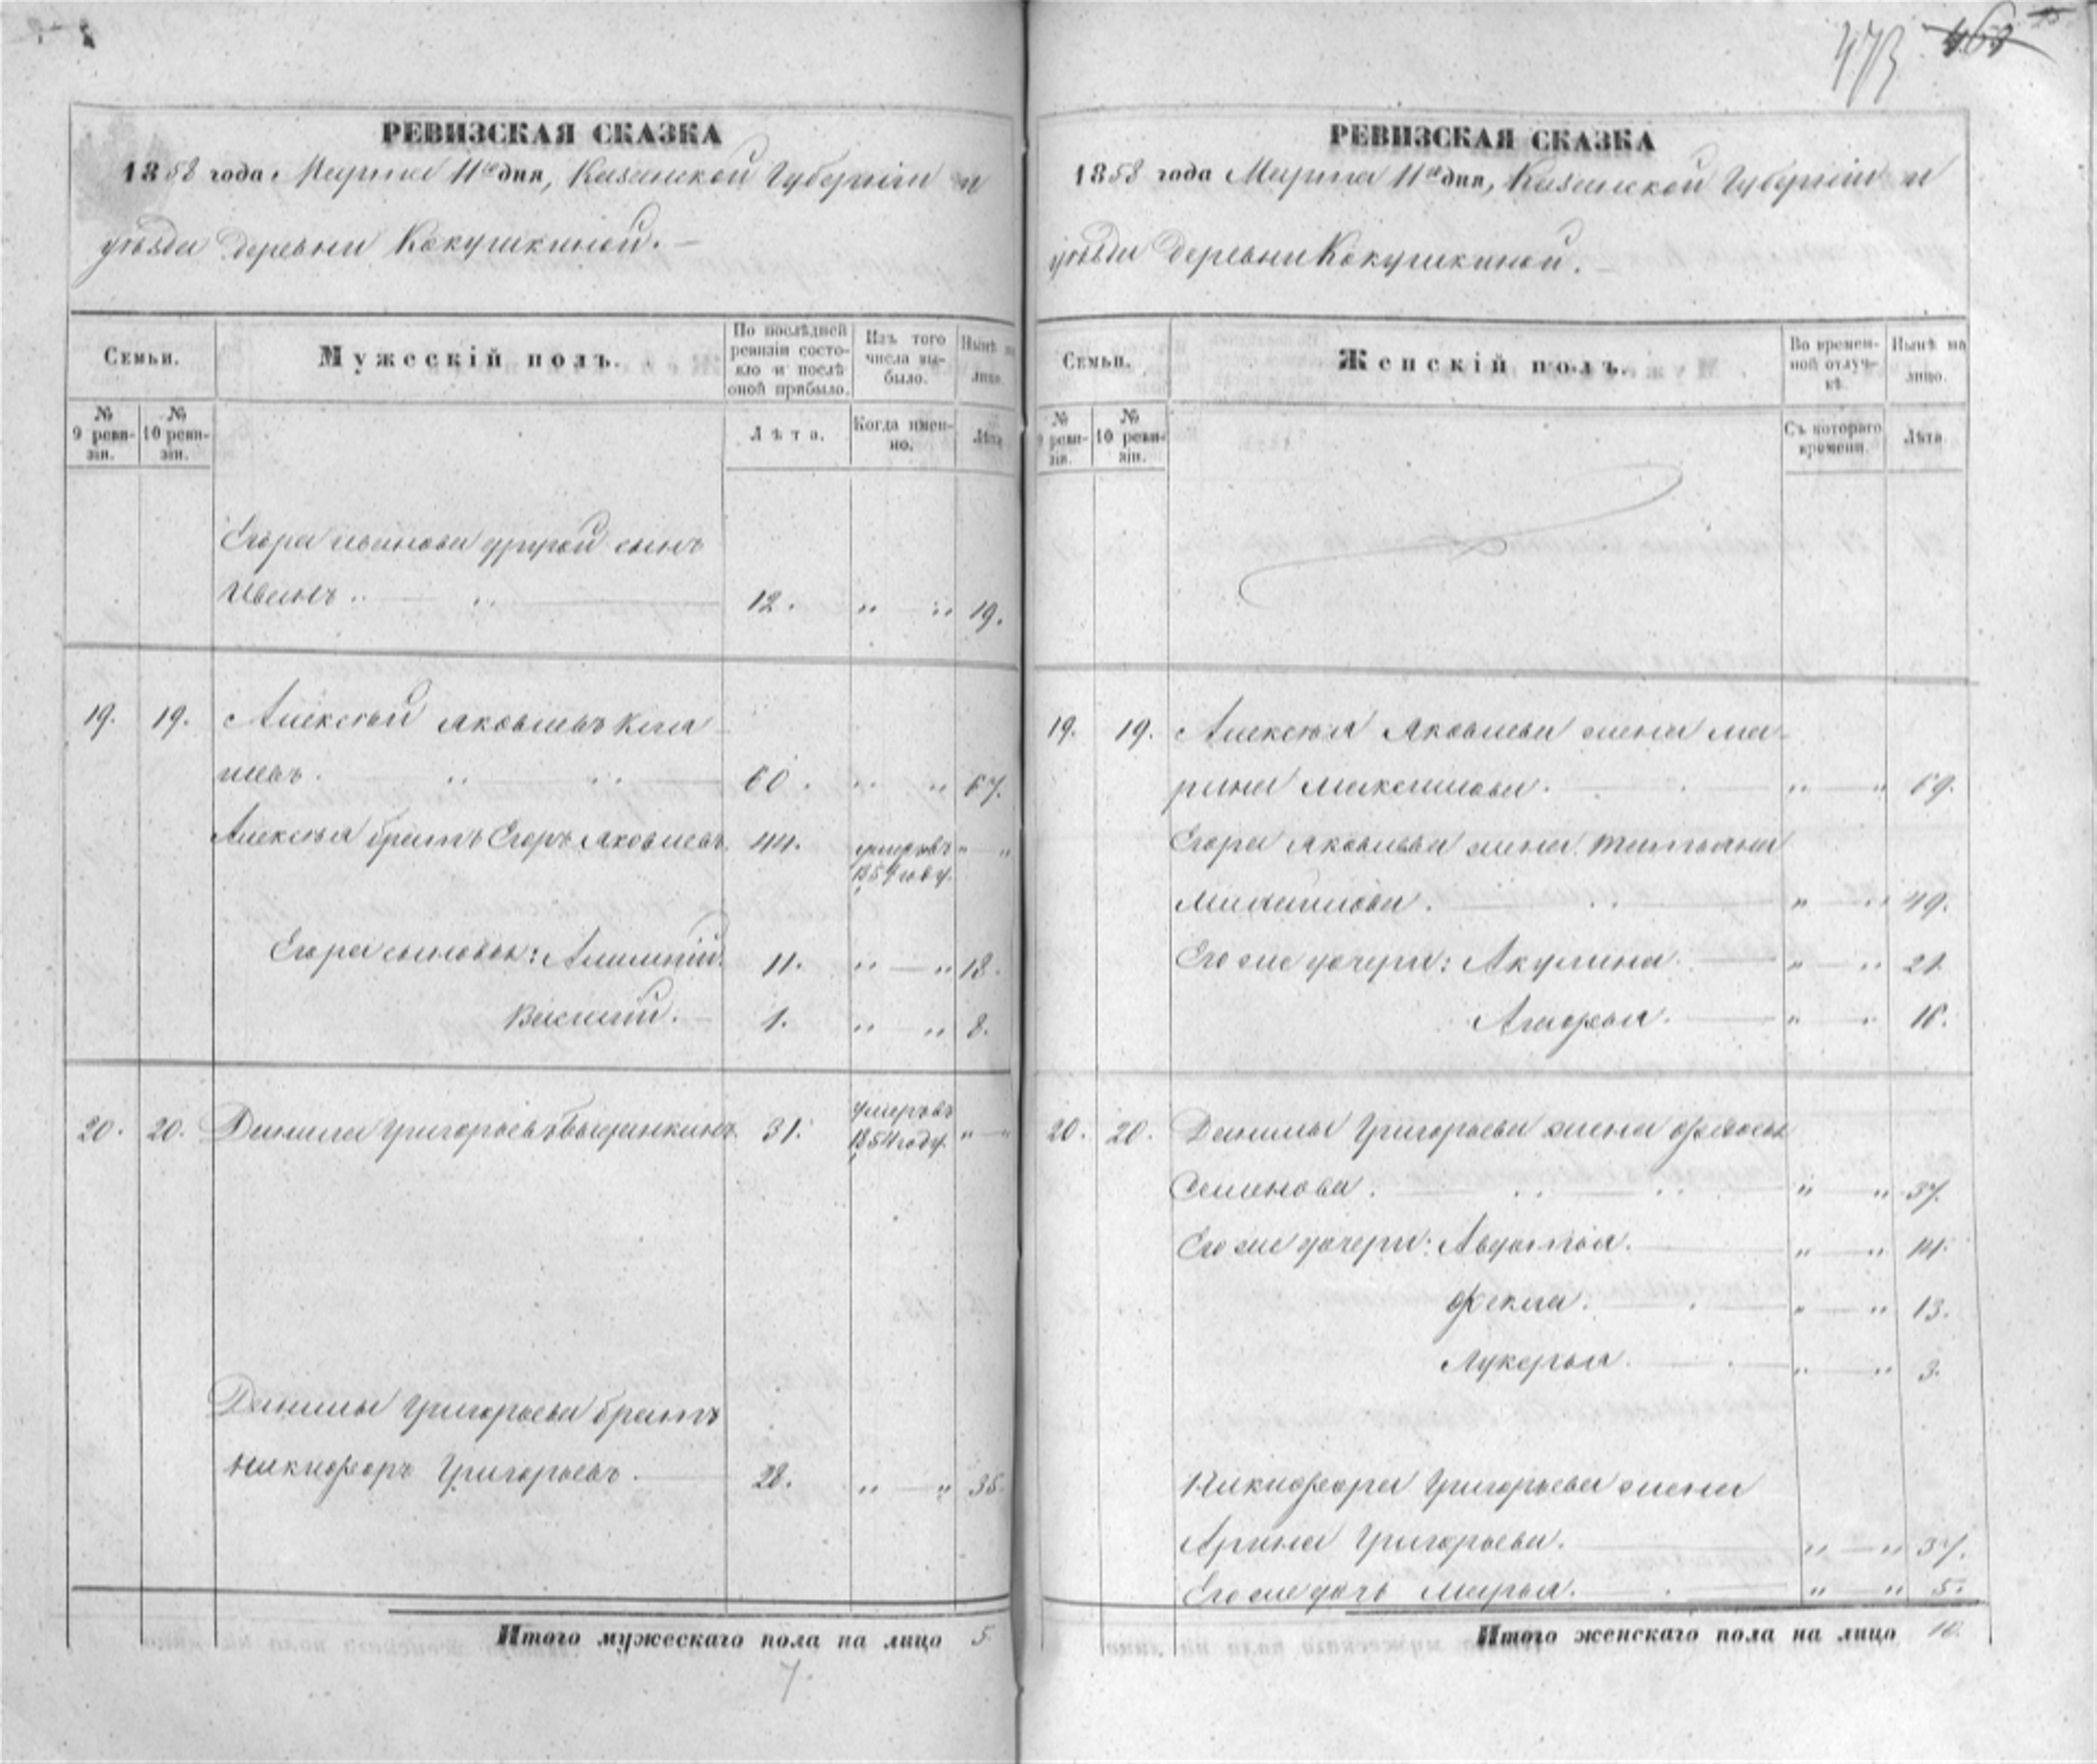 473 463
РЕВИЗСКАЯ СКАЗКА
1858 года Марта 11го дня, Казанской Губерніи и
уѣзда деревни Кокушкиной.
Семьи.
Мужескій полъ.
По послѣдней ревизіи состояло и послѣ оной прибыло.
Изъ того числа выбыло.
Нынѣ на лицо.
№ 9 ревизіи.
№ 10 ревизіи.
Лѣта.
Когда именно.
Лѣта
Егора Иванова другой сынъ
Иванъ 12. " " 19.
19. 19. Алексѣй Яковлевъ
60. " " 67.
Алексѣя братъ Егоръ Яковлевъ. 44. умеръ въ " "
1854 году.
Егора сыновья: 11. " " 18.
Василій. 1. " " 8.
20. 20. Данила Григорьевъ 31. умеръ въ
1854 году. " "
Данилы Григорьева братъ
Никифоръ Григорьевъ. 28. " " 35.
Итого мужескаго пола на лицо 5.
7.
РЕВИЗСКАЯ СКАЗКА
1858 года Марта 11го дня, Казанской Губерніи и
уѣзда деревни Кокушкиной.
Семьи.
Женскій полъ.
Во временной отлучкѣ.
Нынѣ на лицо.
№ 9 ревизіи.
№ 10 ревизіи.
Съ котораго времени.
Лѣта
19. 19. Алексѣя Яковлева жена Ма-
рина Максимова. " " 69.
Егора Яковлева жена Татьяна
" " 49.
Его же дочери: Акулина. " " 21
Агафья. " " 16.
20. 20. Данилы Григорьева жена Федосья
Семенова. " " 37.
Его же дочери: Авдотья. " " 14.
Фекла. " " 13.
Лукерья. " " 3.
Никифора Григорьева жена
Арина Григорьева. " " 37.
Его же дочь Марья. " " 5.
Итого женскаго пола на лицо 10.